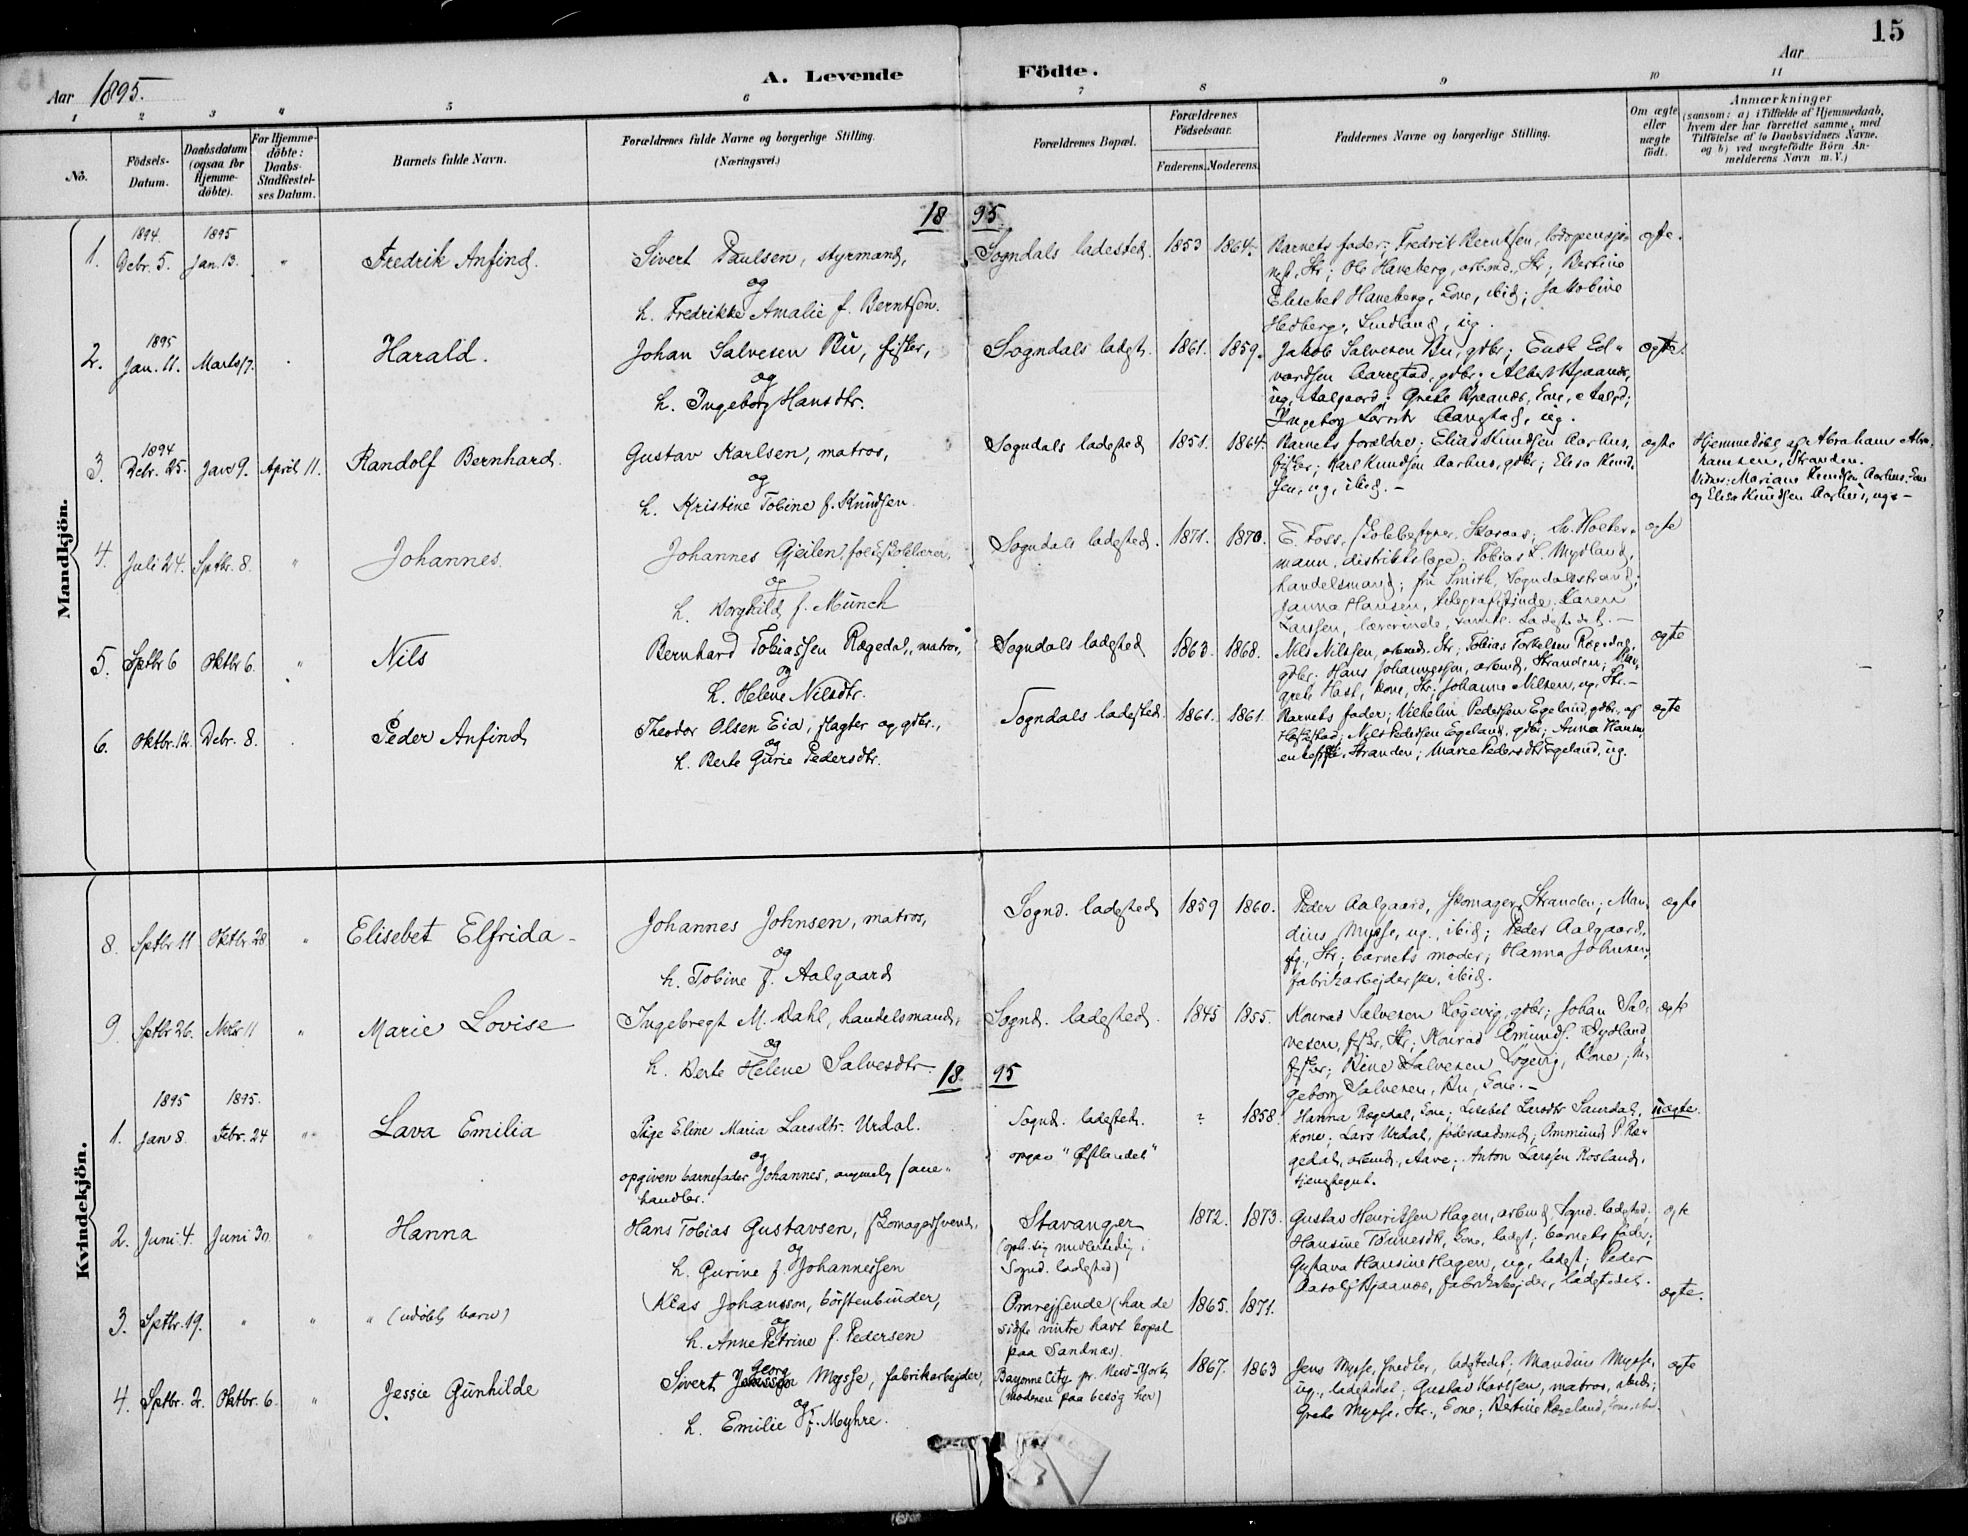 15
Aar 1895.
A. Levende Födte.
Aar
1 2 3 4 5 6 7 8 9 10 11
No.
Födsels-Datum.
Daabsdatum (ogsaa for Hjemmedöbte).
For Hjemmedöbte: Daabs-Stadfæstelses Datum.
Barnets fulde Navn.
Forældrenes fulde Navne og borgerlige Stilling.
(Næringsvei.)
Forældrenes Bopæl.
Forældrenes Födselsaar.
Faderens. Moderens.
Faddernes Navne og borgerlige Stilling.
Om ægte eller uægte födt.
Anmærkninger
(saasom: a) i Tilfælde af Hjemmedaab,
hvem der har forrettet samme, med
Tilföielse af to Daabsvidners Navne,
og b) ved uægtefödte Börn Anmelderens Navn m.V.)
Mandkjön.
1895
1. 1894 Debr. 5. 1895 Jan. 13. " Fredrik Anfind.
Sivert Paulsen, styrmand,
og
h. Fredrikke Amalie f. Berntsen.
Sogndals ladested. 1853 1864.
Barnets fader; Fredrik Berntsen, lodspensjo-
nist, Str; Ole Haneberg, arbmd., Str; Bertine
Elisebet Haneberg, kone, ibid; Jakobine
Hedberg, Lindland, ug.
ægte.
2. 1895 Jan. 11. Marts 17. Harald.
Johan Salvesen Bu, fisker,
og
h. Ingeborg Hansdtr.
Sogndals ladst. 1861. 1859.
Jakob Salvesen Bu, gdbr;
vardsen Aarrestad, gdbr; Albert Kjaanæs,
ug, Aalgaard; Grete Kjaanæs, kone,
Ingeborg
ægte.
3. 1894 Debr. 25. Jan 9. April 11. Randolf Bernhard.
Gustav Karlsen, matros,
og
h. Kristine Tobine f. Knudsen.
Sogndals ladested 1851. 1864.
Barnets forældre; Elias Knudsen Aarhus,
fisker; Karl Knudsen Aarhus, gdbr; Elisa Knud-
sen, ug, ibid. –
ægte
Hjemmedöbt af Abraham Abra-
hamsen, Stranden.
Vidner: Mariane Knudsen Aarhus, kone
og Elisa Knudsen Aarhus, ug. –
4. Juli 24. Septbr. 8. " Johannes.
Johannes Gjeilen, folkeskolelærer,
og
h. Borghild f. Münch
Sogndals ladested. 1871. 1870.
E. Foss, skolebestyrer, ; Hoeker-
mann, distriktslæge; Tobias L. Mydland,
handelsmand; fru Smith, Sogndalsstrand;
Janna Hansen, telegrafistinde; Karen
Larssen, lærerinde, samtl. ladestedet. –
ægte
5. Septbr 6 Oktbr 6. " Nils
Bernhard Tobiassen Rægedal, matros,
og
h. Helene Nilsdtr.
Sogndals ladested 1863. 1868.
Nils Nilssen, arbmd. Str; Tobias Torkelsen Rægedal,
gdbr. Hans Johannessen, arbmd, Stranden; Mar-
grete Hast, kone, Str; Johanne Nilsen, ug, Str. –
ægte
6. Oktbr. 12. Debr. 8. Peder Anfind
Theodor Olsen Eia, slagter og gdbr.,
og
h. Berte Gurie Pedersdtr.
Sogndals ladested. 1861. 1861.
Barnets fader; Vilhelm Pedersen Egeland, gdbr. af
Hæskestad; Nils Pedersen Egeland, gdbr; Anna Hansen,
enke, Stranden; Marie Pedersdtr Egeland, ug.
ægte
Kvindekjön.
8. Septbr 11 Oktbr 28 " Elisebet Elfrida –
Johannes Johnsen, matros,
og
h. Tobine f. Aalgaard
Sognd. ladested 1859 1860.
Peder Aalgaard, skomager, Stranden; Man-
dius Mysse, ug., ibid; Peder Aalgaard,
Str; barnets moder; Hanna Johnsen,
fabrikarbejderske, ibid.
ægte
9. Septbr 26. Novbr 11 " Marie Lovise
Ingebregt M. Dahl, handelsmand,
og
h. Berte Helene Salvesdtr.
Sognd. ladested. 1845 1855.
Konrad Salvesen Løgevig, gdbr; Johan Sal-
vesen, fisker, Str; Konrad Omunds. Lydland
fisker; Rine Salvesen Løgevig, kone; In-
geborg Salvesen, Bu, kone. –
ægte
1895
1. 1895 Jan 8. 1895. Febr. 24 " Lava Emilia
Pige Eline Maria Larsdtr. Urdal.
og
opgiven barnefader Johannes, angivelig
handler.
Sognd. ladested.
opgav "Østlandet"
? 1858.
Hanna Rægedal, kone; Lisebet Larsdtr Saurdal,
kone; Lars Urdal, föderaadsmd; Ommund P. Ræ-
gedal, arbmd., Aave; Anton Larssen Rosland,
tjenestegut.
uægte.
2. Juni 4. Juni 30. " Hanna
Hans Tobias Gustavsen, skomagersvend,
og
h. Gurine f. Johannessen
Stavanger
(oph. sig midlertidig i
Sognd. ladested)
1872. 1873.
Gustav Henriksen Hagen, arbmd, Sognd. ladested.
Hansine Tönnesdtr, kone, ladst; barnets fader;
Gustava Hansine Hagen, ug, ladest; Peder
Aadolf Kjaanæs, fabrikarbejder, ladestedet.
ægte
3. Septbr. 19. " " " (udöbt barn)
Klas Johansson, börstenbinder,
og
h. Anne Petrine f. Pedersen
Omrejsende (har de
sidste vintre havt bopæl
paa Sandnæs).
1865. 1871.
ægte.
4. Septbr. 2. Oktbr. 6. " Jessie Gunhilde
Sivert Georg Mysse, fabrikarbejder,
og
h. Emilie f. Myhre.
Bayonne City pr. New-York
(moderen paa besøg her)
1867. 1863
Jens Mysse, snedker, ladestedet; Mandius Mysse,
ug., ladestedet; Gustav Karlsen, matros, ibid;
Grete Mysse, Str., kone; Bertine Rægeland, kone, ibid.
ægte